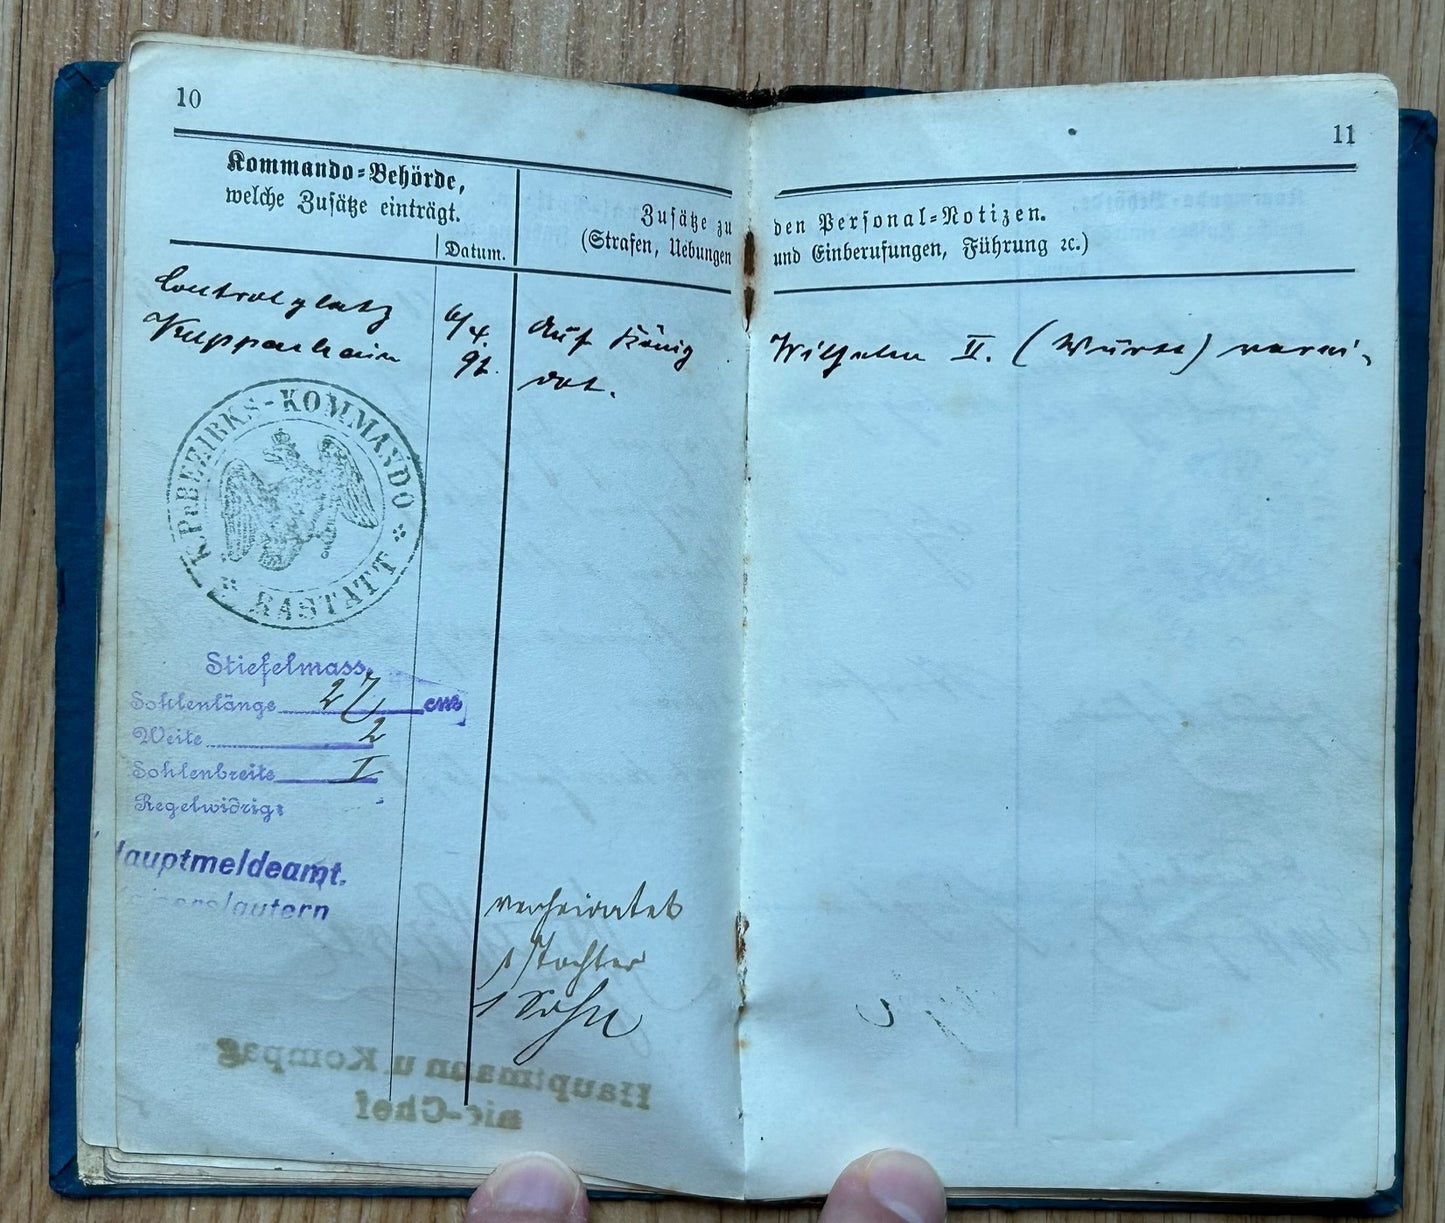 10
11
Kommando-Behörde,
welche Zusätze einträgt.
Datum.
Zusätze zu den Personal-Notizen.
(Strafen, Uebungen und Einberufungen, Führung ꝛc.)
Controlplatz
Kuppenheim
6/4.
92.
Auf König Wilhelm II. (Württ) verei-
det.
K. Pr. BEZIRKS-KOMMANDO
RASTATT
Stiefelmass.
Sohlenlänge 27 cm
Weite 2
Sohlenbreite I
Regelwidrig:
Hauptmeldeamt.
Kaiserslautern
verheiratet
1 Tochter
1 Sohn
Hauptmann u Kompag
nie-Chef